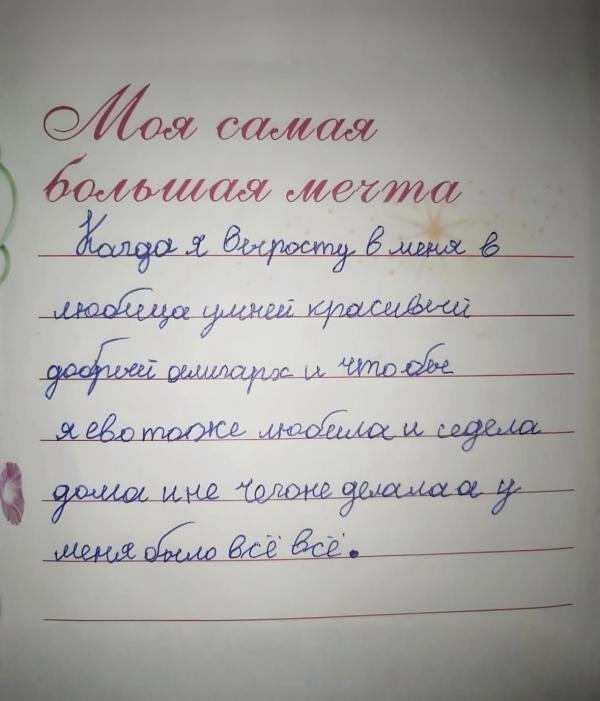 Моя самая
большая мечта
Кагда я выросту в меня в
любица умней красивый
добрый алигарх и что бы
я ево тоже любила и седела
дома и не чегоне делала а у
меня было всё всё.